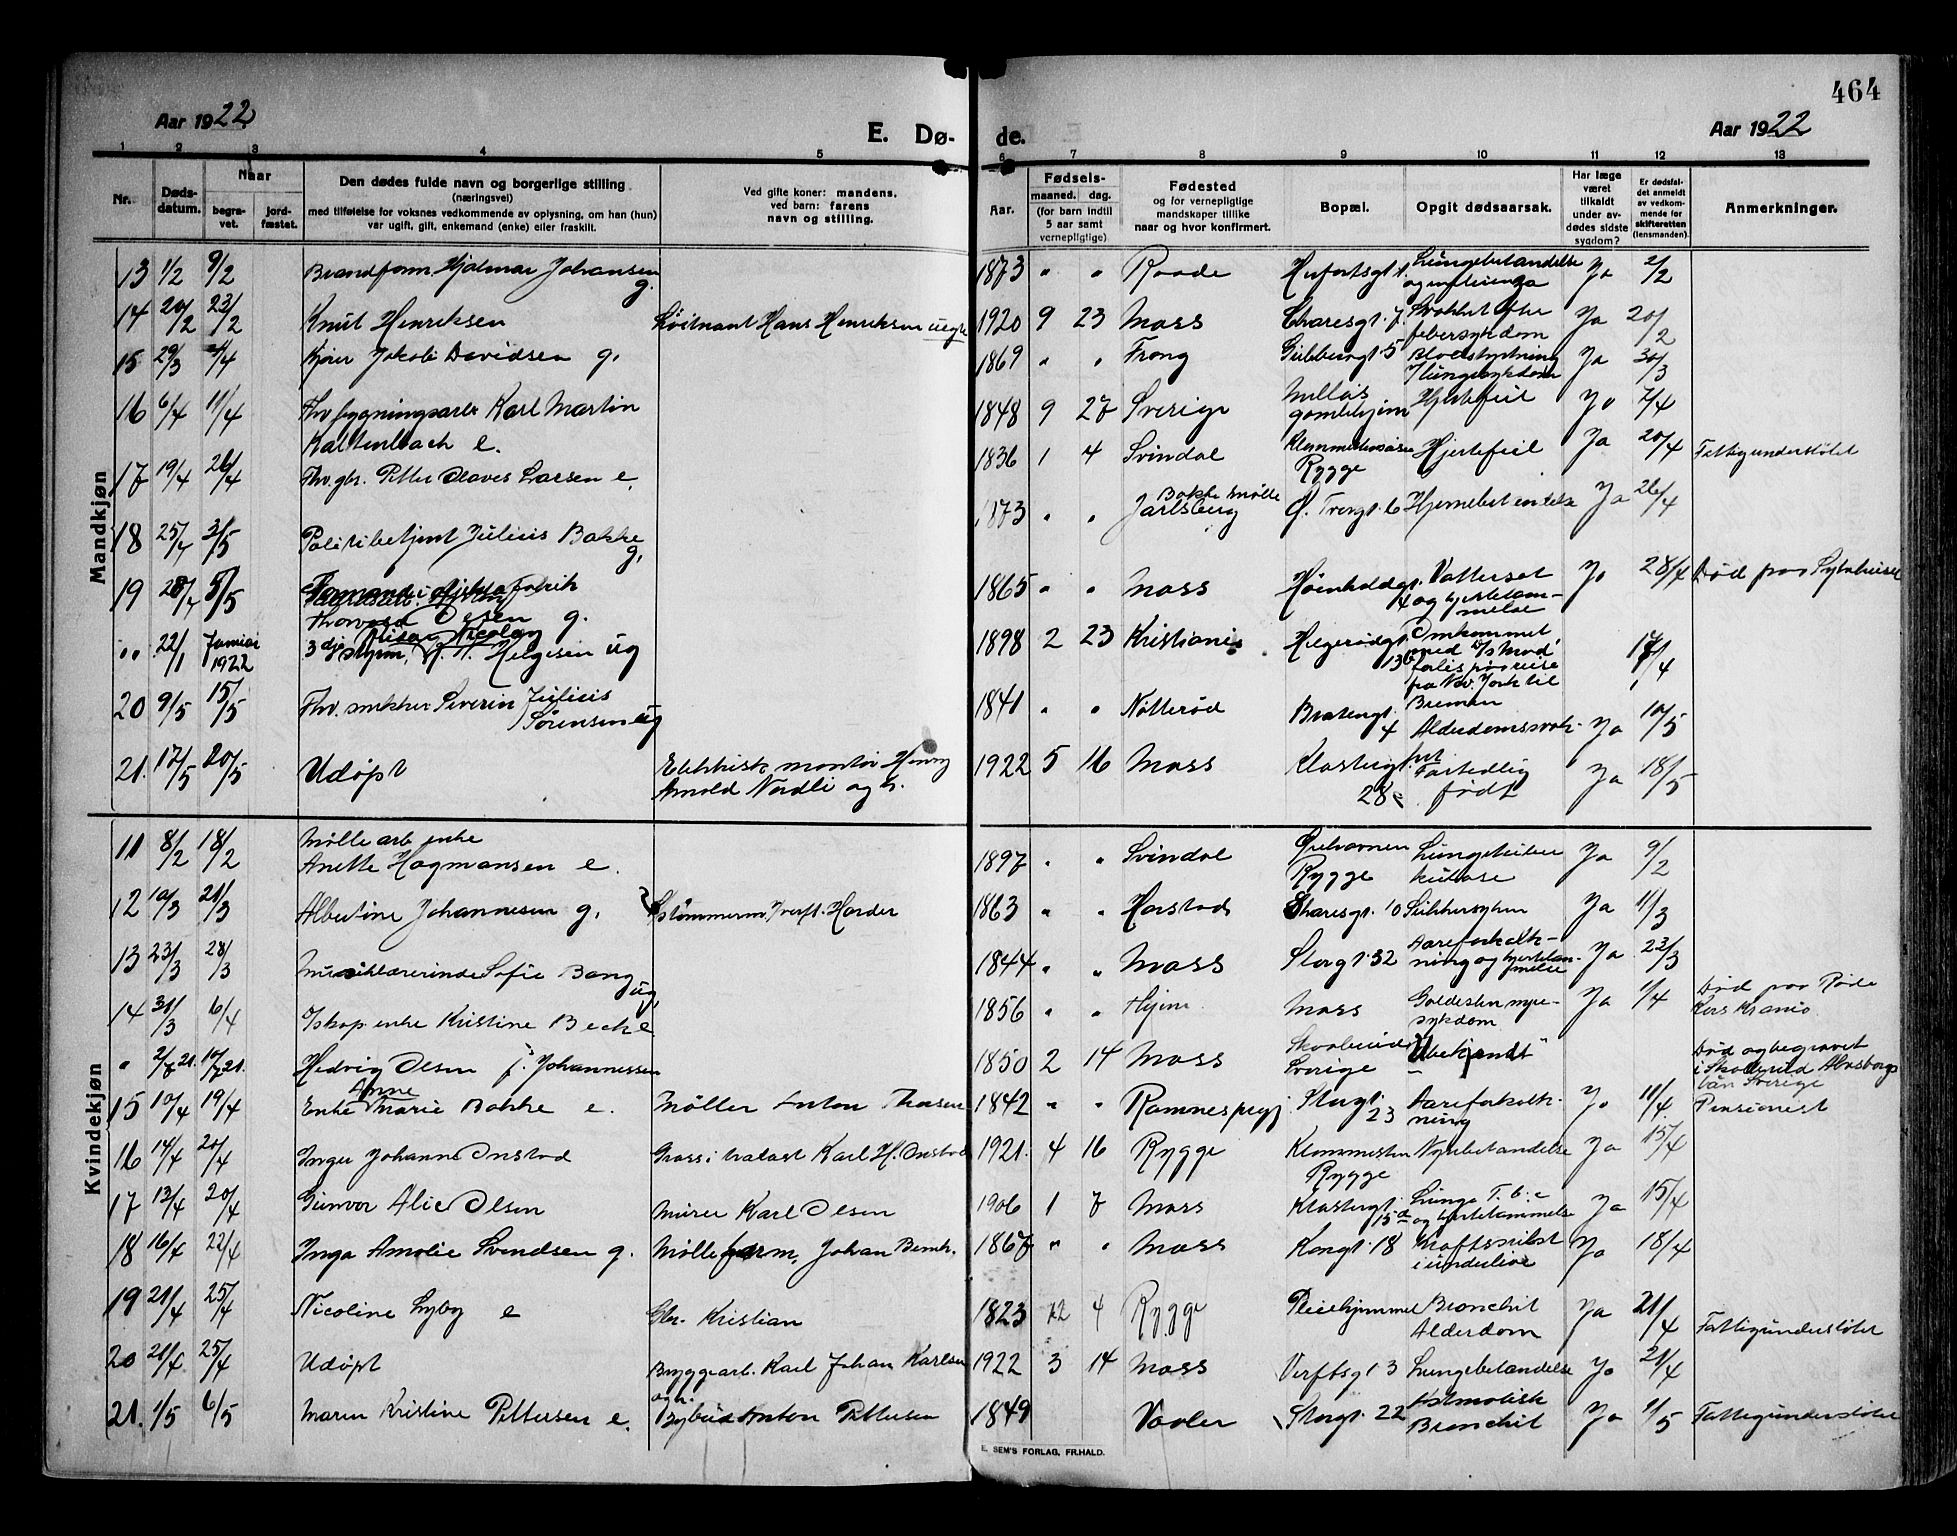 464
Aar 1922.
E. Dø- de.
Aar 1922
1 2 3 4 5 6 7 8 9 10 11 12 13
Nr.
Døds-
datum.
Naar
begra-
vet.
jord-
fæstet.
Den dødes fulde navn og borgerlige stilling
(næringsvei)
med tilføielse for voksnes vedkommende av oplysning, om han (hun)
var ugift, gift, enkemand (enke) eller fraskilt.
Ved gifte koner: mandens.
ved barn: farens
navn og stilling.
Fødsels-
Aar. maaned. dag.
(for barn indtil
5 aar samt
vernepligtige)
Fødested
og for vernepligtige
mandskaper tillike
naar og hvor konfirmert.
Bopæl.
Opgit dødsaarsak.
Har læge
været
tilkaldt
under av-
dødes sidste
sygdom?
Er dødsfal-
det anmeldt
av vedkom-
mende for
skifteretten
(lensmanden).
Anmerkninger.
Mandkjøn
13 1/2 9/2 Brandform. Hjalmar Johansen g. 1873 " " Raade Ja 2/2
Lungebetændelse
og influenza
14 20/2 23/2 Knut Henriksen Løitnant Hans Henriksen uegte 1920 9 23 Moss Ja 20/2
febersykdom
15 29/3 4/4 Kjører Jakob Davidsen g. 1869 " " Frong Ja 30/3
Blodstyrtning
Lungesykdom
16 6/4 11/4 Fhv bygningsarb Karl Martin
Kaltenbach e. 1848 9 27 Sverige Hjertefeil Ja 7/4
gamlehjem
17 19/4 26/4 Fhv. gbr. Petter Olaves Larsen e. 1836 1 4 Svindal Rygge Hjertefeil Ja 20/4 Fattigunderstøtet
18 25/4 3/5 Politibetjent Julius Bakke g. 1873 " " Bakke mølle
Jarlsberg Hjernebetændelse Ja 26/4
19 28/4 5/5 Formand i Fabrik
Thorvald Olsen g. 1865 " " Moss Vattersot
og hjertelam-
melse Ja 28/4 Død paa Sykehuset
" 22/1 Januar
1922 3dje styrm. Nicolay
H. Helgesen ug 1898 2 23 Kristiania Helgerødgt.
13 Omkommet
med D/S Mod
forlis paa reise
fra New York til
Bremen 17/4
20 9/5 15/5 Fhv. snekker Severin Julius
Sørensen ug 1841 " " Nøtterød Bratengt.
4 Alderdomssvak-
het Ja 10/5
21. 17/5 20/5 Udøpt Elektrisk montør Henry
Arnold Nordli og h. 1922 5 16 Moss Klostergt.
28 Fortidlig
født Ja 18/5
Kvindekjøn
11 8/2 18/2 Møllearb enke
Anette Hagmansen e. 1897 " " Svindal Rygge Lungetuber-
kulose Ja 9/2
12 10/3 21/3 Albertine Johannesen g. 1863 " " Harstad 10 Sukkersyken Ja 11/3
13 23/3 28/3 Musiklærerinde Sofie Bang ug. 1844 " " Moss Storgt. 32 Aareforkalk-
ning og hjertelam-
melse Ja 23/3
14 31/3 6/4 Iskap. enke Kristine Beck e 1856 " " Moss Galdesten nyre-
sykdom Ja 1/4 Død paa Røde
Kors Krania
" 2/7 21. 10/7 21. Hedvig Olsen f. Johannessen 1850 2 14 Moss Sverige Ubekjendt Død og begravet
i Skallerud Alvsborgs
län Sverige
15 10/4 19/4 Enke Anne Marie Bakke e. Møller Anton Thorsen 1842 " " Ramnes pregj Storgt.
23 Aareforkalk-
ning Ja 11/4. Pensionist
16 14/4 20/4 Inger Johanne Onstad Karl H. Onstad 1921. 4 16 Rygge
Rygge Nyrebetændelse Ja 15/4
17 13/4 20/4 Gunvor Alice Olsen Murer Karl Olsen 1906 1 7 Moss Klostergt.
15 d Lunge T.b.c
og hjertelammelse Ja 15/4
18 16/4 22/4 Inga Amalie Svendsen g. Mølleform. Johan Bernh. 1867 " " Moss Kongt. 18 Kræftsvulst
i underlivet Ja 18/4
19 21/4 25/4 Nicoline Lyby e Gbr. Kristian 1823 12 4 Rygge Pleiehjemmet Bronchit
Alderdom Ja 21/4 Fattigunderstøtet
20 21/4 25/4 Udøpt Bryggearb. Karl Johan Karlsen
og h. 1922 3 14 Moss Verftsgt 3 Lungebetændelse Ja 21/4
21. 1/5 6/5 Maren Kristine Pettersen e. Bybud Anton Pettersen 1849 Vaaler Storgt. 22 Astmatisk
Bronchit Ja 1/5 Fattigunderstøtet
E. SEM'S FORLAG, FR.HALD.